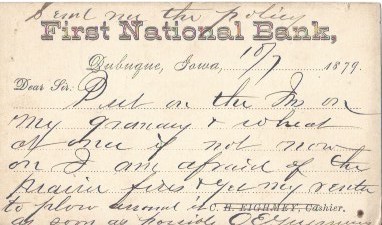 Send me the policy
First National Bank,
Dubuque, Iowa, 10/7 1879.
Dear Sir. Put on the Ins on
my granary & wheat
at once if not now
on I am afraid of the
prairie fires & get my renter
to plow around it C. H. EIGHMEY, Cashier.
as soon as possible